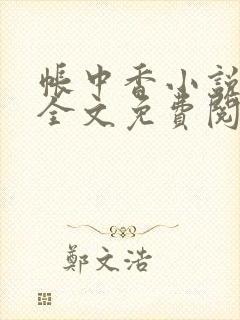 帳中香小說
全文免費閱
鄭文浩